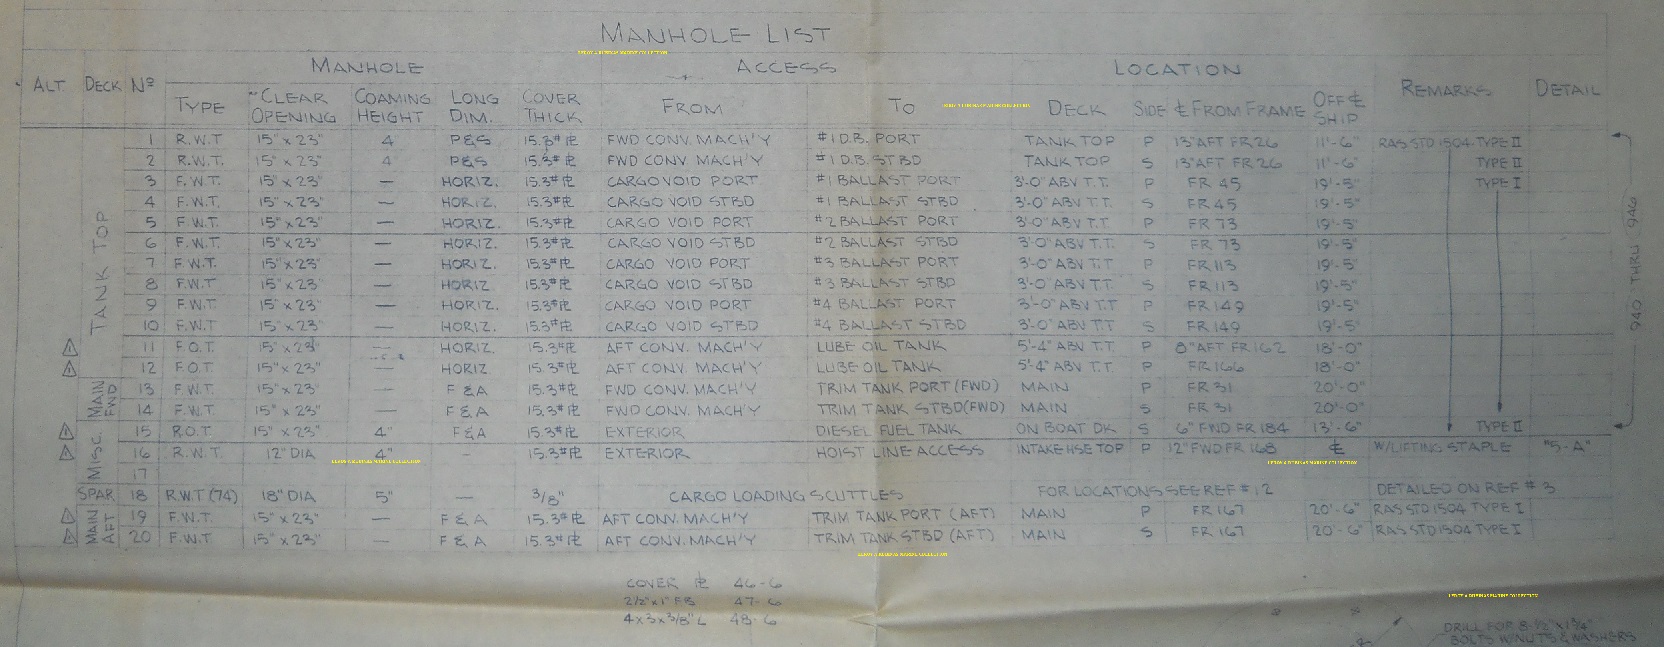 MANHOLE LIST
ALT DECK Nº MANHOLE ACCESS LOCATION REMARKS DETAIL
TYPE CLEAR OPENING COAMING HEIGHT LONG DIM. COVER THICK FROM TO DECK SIDE ℄ FROM FRAME OFF ℄ SHIP
1 R.W.T 15" x 23" 4" P&S 15.3# ℙL FWD CONV. MACH'Y #1 D.B. PORT TANK TOP P 13" AFT FR 26 11'-6" RAS STD 1504 TYPE II
2 R.W.T. 15" x 23" 4 P&S 15.3# ℙL FWD CONV. MACH'Y #1 D.B. STBD TANK TOP S 13" AFT FR 26 11'-6" TYPE II
3 F.W.T. 15" x 23" — HORIZ. 15.3# ℙL CARGO VOID PORT #1 BALLAST PORT 3'-0" ABV T.T. P FR 45 19'-5" TYPE I
4 F.W.T. 15" x 23" — HORIZ. 15.3# ℙL CARGO VOID STBD #1 BALLAST STBD 3'-0" ABV T.T. S FR 45 19'-5"
5 F.W.T. 15" x 23" — HORIZ. 15.3# ℙL CARGO VOID PORT #2 BALLAST PORT 3'-0" ABV T.T. P FR 73 19'-5"
6 F.W.T. 15" x 23" — HORIZ. 15.3# ℙL CARGO VOID STBD #2 BALLAST STBD 3'-0" ABV T.T. S FR 73 19'-5"
7 F.W.T. 15" x 23" — HORIZ. 15.3# ℙL CARGO VOID PORT #3 BALLAST PORT 3'-0" ABV T.T P FR 113 19'-5"
8 F.W.T. 15" x 23" — HORIZ. 15.3# ℙL CARGO VOID STBD #3 BALLAST STBD 3'-0" ABV T.T. S FR 113 19'-5"
9 F.W.T. 15" x 23" — HORIZ. 15.3# ℙL CARGO VOID PORT #4 BALLAST PORT 3'-0" ABV T.T P FR 149 19'-5"
10 F.W.T 15" x 23" — HORIZ. 15.3# ℙL CARGO VOID STBD #4 BALLAST STBD 3'-0" ABV T.T S FR 149 19'-5"
11 F.O.T. 15" x 23" — HORIZ. 15.3# ℙL AFT CONV. MACH'Y LUBE OIL TANK 5'-4" ABV T.T P 8" AFT FR 162 18'-0"
12 F.O.T. 15" x 23" — HORIZ 15.3# ℙL AFT CONV. MACH'Y LUBE OIL TANK 5'-4" ABV T.T. P FR 166 18'-0"
13 F.W.T. 15" x 23" — F & A 15.3# ℙL FWD CONV. MACH'Y TRIM TANK PORT (FWD) MAIN P FR 31 20'-0"
14 F.W.T. 15" x 23" — F & A 15.3# ℙL FWD CONV. MACH'Y TRIM TANK STBD (FWD) MAIN S FR 31 20'-0"
15 R.O.T. 15" x 23" 4" F & A 15.3# ℙL EXTERIOR DIESEL FUEL TANK ON BOAT DK S 6" FWD FR 184 13'-6" TYPE II
16 R.W.T. 12" DIA 4" - 15.3# ℙL EXTERIOR HOIST LINE ACCESS INTAKE HSE TOP P 12" FWD FR 168 ℄ W/LIFTING STAPLE "5-A"
17
18 R.W.T (74) 18" DIA 5" — 3/8" CARGO LOADING SCUTTLES FOR LOCATIONS SEE REF #12 DETAILED ON REF #3
19 F.W.T. 15" x 23" — F & A 15.3# ℙL AFT CONV. MACH'Y TRIM TANK PORT (AFT) MAIN P FR 167 20'-6" RAS STD 1504 TYPE I
20 F.W.T 15" x 23" — F & A 15.3# ℙL AFT CONV. MACH'Y TRIM TANK STBD (AFT) MAIN S FR 167 20'-6" RAS STD 1504 TYPE I
TANK TOP
MAIN FWD
MISC.
SPAR
MAIN AFT
940 THRU 946
COVER ℙL 46-6
2 1/2" x 1" FB 47-6
4 x 3 x 3/8" L 48-6
DRILL FOR 8-1/2" x 1 3/4"
BOLTS W/NUTS & WASHERS